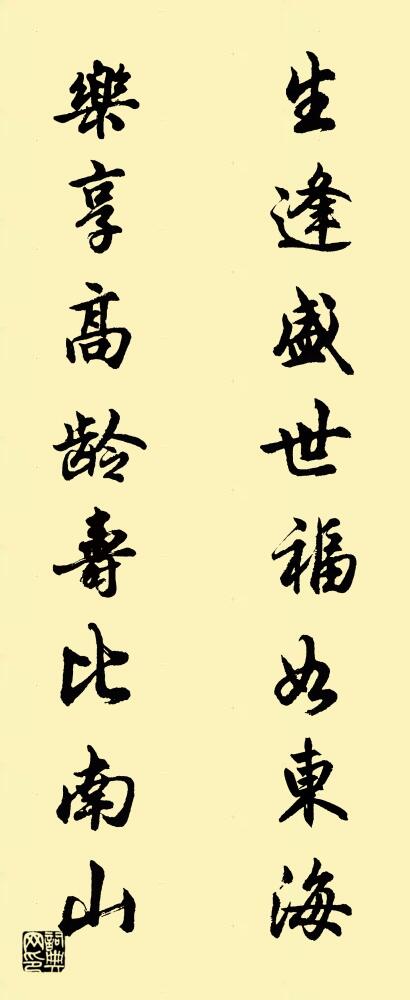 生逢盛世福如東海
樂享高龄壽比南山
詞典網印